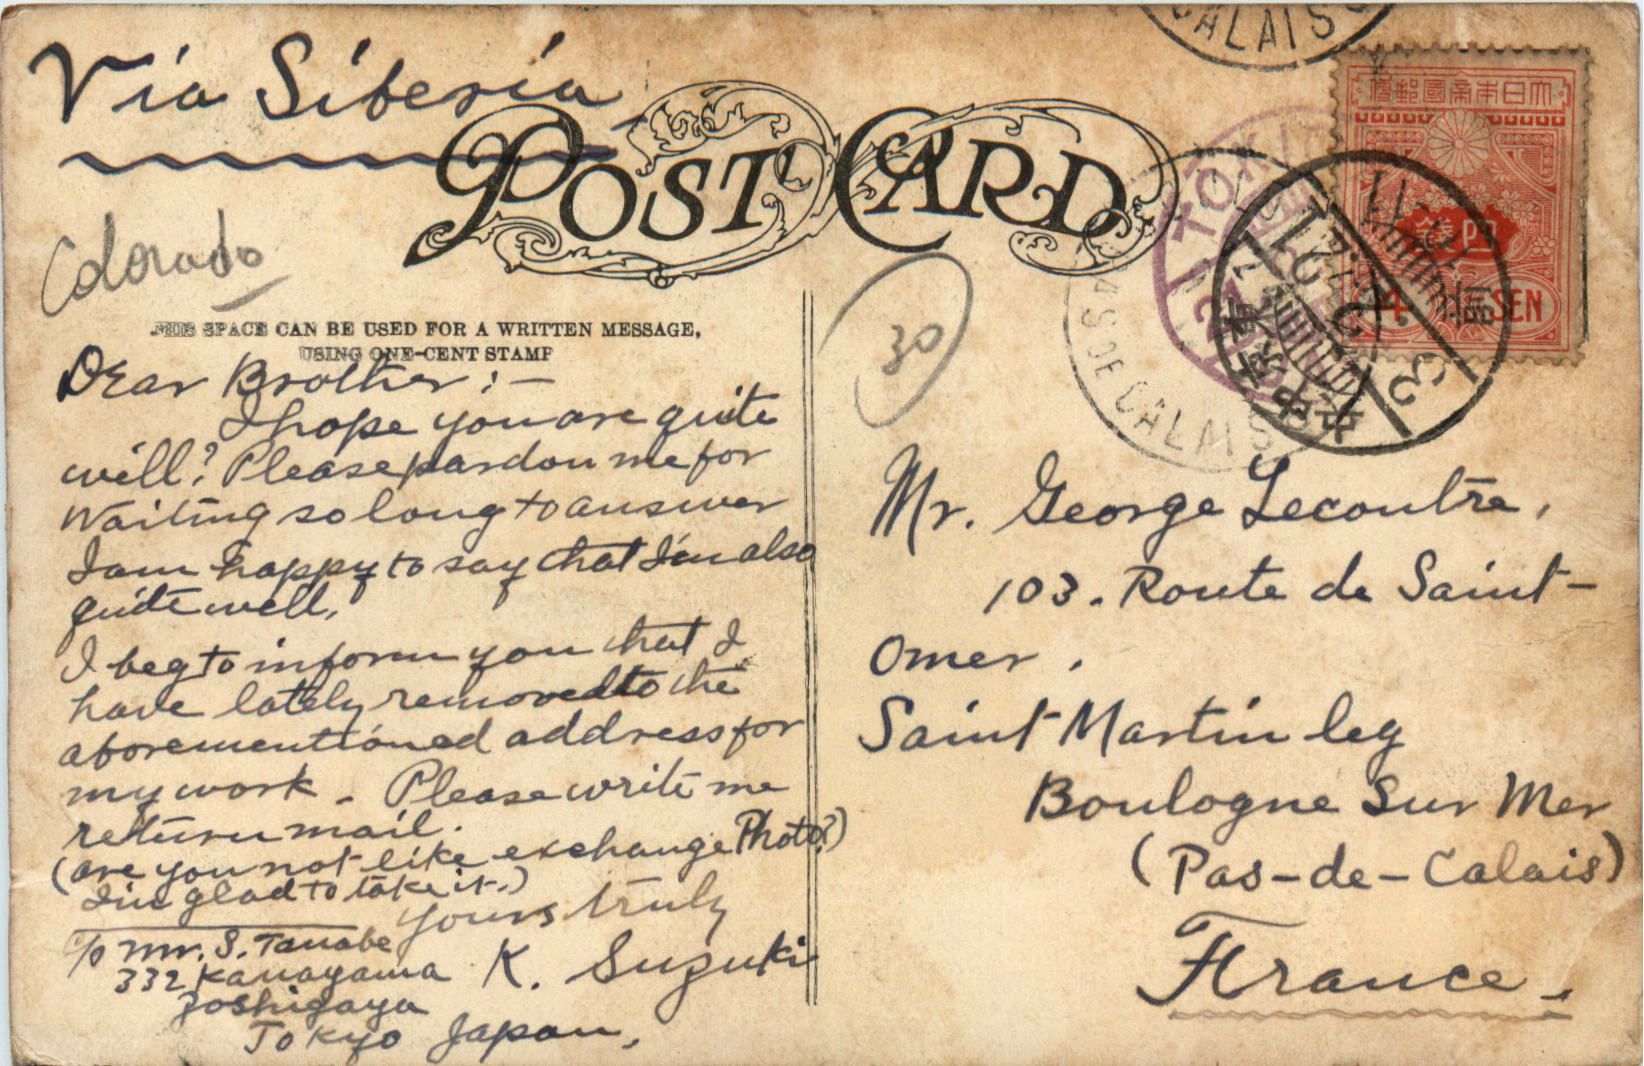 Via Siberia
POST CARD
Colorado
THIS SPACE CAN BE USED FOR A WRITTEN MESSAGE,
USING ONE-CENT STAMP
Dear Brother:—
I hope you are quite
will? Please pardon me for
Waiting so long to answer
I am happy to say that I'm also
quite well.
I beg to inform you that I
have lately removed to the
aforementioned address for
my work. Please write me
return mail.
(are you not like exchange Photo?)
I'm glad to take it.)
Yours truly
K. Suzuki
c/o Mr. S. Tanabe
332 Kanayama
Zoshigaya
Tokyo Japan,
30
CALAIS
大日本帝國郵便
四錢
4 SEN
TOKIO
PAS DE CALAIS
Mr. George Lecoultre,
103. Route de Saint-
Omer.
Saint Martin leg
Boulogne Sur Mer
(Pas-de-Calais)
France.